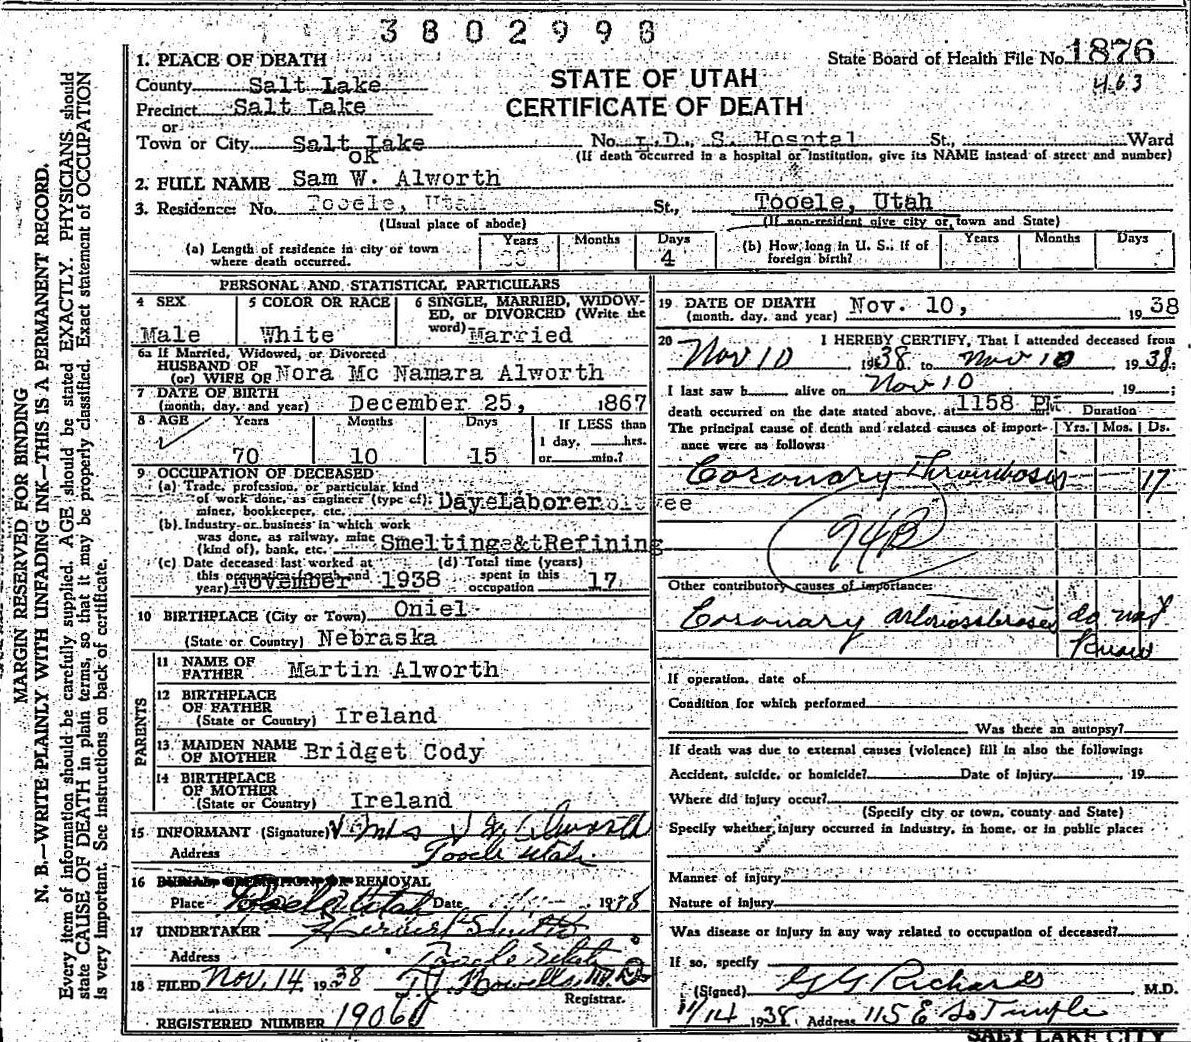 3802998
1. PLACE OF DEATH
State Board of Health File No. 1876
463
County Salt Lake
STATE OF UTAH
Precinct Salt Lake
CERTIFICATE OF DEATH
or
Town or City Salt Lake No. L.D. S. Hosptal St., Ward
OK
(If death occurred in a hospital or institution, give its NAME instead of street and number)
2. FULL NAME Sam W. Alworth
3. Residence: No. Tooele, Utah St., Tooele, Utah
(Usual place of abode) (If non-resident give city or town and State)
(a) Length of residence in city or town where death occurred. Years Months Days 4
(b) How long in U. S., if of foreign birth? Years Months Days
PERSONAL AND STATISTICAL PARTICULARS
4 SEX Male
5 COLOR OR RACE White
6 SINGLE, MARRIED, WIDOWED, or DIVORCED (Write the word) Married
6a If Married, Widowed, or Divorced
HUSBAND OF
(or) WIFE OF Nora Mc Namara Alworth
7 DATE OF BIRTH
(month, day, and year) December 25, 1867
8 AGE Years Months Days If LESS than
70 10 15 1 day, hrs.
or min.?
9 OCCUPATION OF DECEASED
(a) Trade, profession, or particular kind
of work done, as engineer (type of):
miner, bookkeeper, etc. Day Laborer
(b) Industry or business in which work
was done, as railway, mine
(kind of), bank, etc. Smelting & Refining
(c) Date deceased last worked at
this occupation (month and
year) November 1938
(d) Total time (years)
spent in this
occupation 17
10 BIRTHPLACE (City or Town) Oniel
(State or Country) Nebraska
PARENTS
11 NAME OF
FATHER Martin Alworth
12 BIRTHPLACE
OF FATHER
(State or Country) Ireland
13 MAIDEN NAME
OF MOTHER Bridget Cody
14 BIRTHPLACE
OF MOTHER
(State or Country) Ireland
15 INFORMANT (Signature) Mrs Alworth
Address Tooele Utah.
16 BURIAL, CREMATION OR REMOVAL
Place Tooele Utah Date 1938
17 UNDERTAKER
Address Tooele Utah
18 FILED Nov. 14 1938 T. J. Howells, M.D.
Registrar.
REGISTERED NUMBER 1906
19 DATE OF DEATH
(month, day, and year) Nov. 10, 1938
20 I HEREBY CERTIFY, That I attended deceased from
Nov 10 1938 to Nov 10 1938:
I last saw h alive on Nov 10 19 ;
death occurred on the date stated above, at 1158 PM.
Duration
The principal cause of death and related causes of importance were as follows: Yrs. Mos. Ds.
Coronary Thrombosis 17
94B
Other contributory causes of importance:
Coronary arteriosclerosis do not
know
If operation, date of
Condition for which performed
Was there an autopsy?
If death was due to external causes (violence) fill in also the following:
Accident, suicide, or homicide? Date of injury , 19
Where did injury occur?
(Specify city or town, county and State)
Specify whether injury occurred in industry, in home, or in public place:
Manner of injury
Nature of injury
Was disease or injury in any way related to occupation of deceased?
If so, specify
(Signed) G G Richards M.D.
11/14 1938 Address 115 E So Temple
SALT LAKE CITY
MARGIN RESERVED FOR BINDING
N. B.—WRITE PLAINLY WITH UNFADING INK—THIS IS A PERMANENT RECORD.
Every item of information should be carefully supplied. AGE should be stated EXACTLY. PHYSICIANS should
state CAUSE OF DEATH in plain terms, so that it may be properly classified. Exact statement of OCCUPATION
is very important. See instructions on back of certificate.